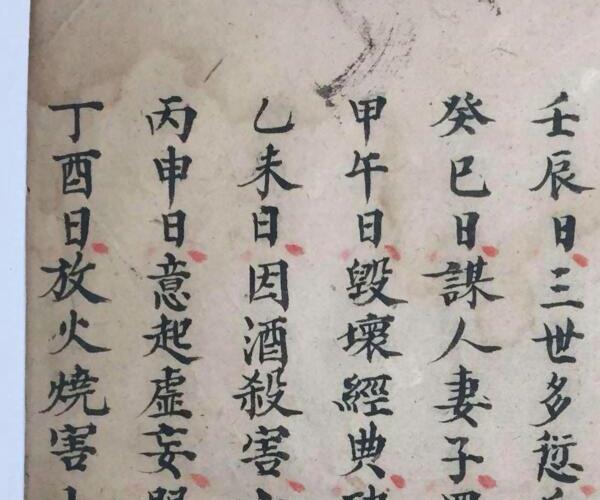 壬辰日三世多愆
癸巳日謀人妻子
甲午日毀壞經典
乙未日因酒殺害
丙申日意起虛妄
丁酉日放火燒害